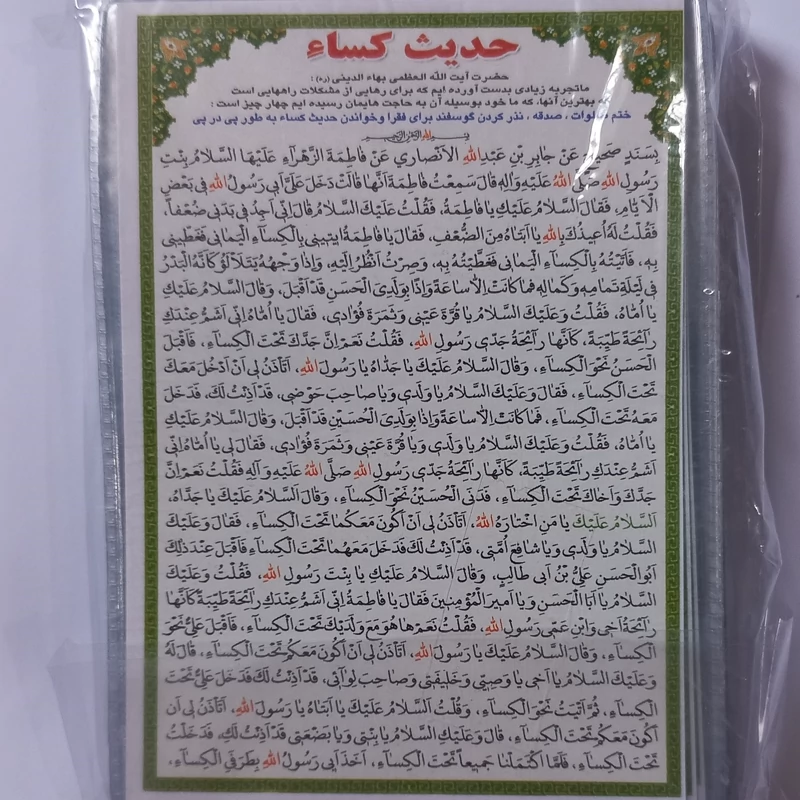 حدیث کساء
حضرت آیت الله العظمی بهاء الدینی (ره) :
ماتجربه زیادی بدست آورده ایم که برای رهایی از مشکلات راههایی است
که بهترین آنها، که ما خود بوسیله آن به حاجت هایمان رسیده ایم چهار چیز است :
ختم صلوات ، صدقه ، نذر کردن گوسفند برای فقرا وخواندن حدیث کساء به طور پی در پی
بِسْمِ اللهِ الرَّحْمنِ الرَّحِیمِ
بِسَنَدٍ صَحیحٍ عَنْ جابِرِ بْنِ عَبْدِاللهِ الْاَنْصاری عَنْ فاطِمَةَ الزَّهْراءِ عَلَیْهَا السَّلامُ بِنْتِ
رَسُولِ اللهِ صَلَّی اللهُ عَلَیْهِ وَالِهِ قالَ سَمِعْتُ فاطِمَةَ اَنَّها قالَتْ دَخَلَ عَلَیَّ اَبی رَسُولُ اللهِ فی بَعْضِ
الْاَیّامِ، فَقالَ السَّلامُ عَلَیْكِ یا فاطِمَةُ، فَقُلْتُ عَلَیْكَ السَّلامُ قالَ اِنّی اَجِدُ فی بَدَنی ضُعْفاً،
فَقُلْتُ لَهُ اُعیذُكَ بِاللهِ یا اَبَتاهُ مِنَ الضُّعْفِ، فَقالَ یا فاطِمَةُ ایتینی بِالْكِساءِ الْیَمانی فَغَطّینی
بِهِ، فَاَتَیْتُهُ بِالْكِساءِ الْیَمانی فَغَطَّیْتُهُ بِهِ، وَصِرْتُ اَنْظُرُ اِلَیْهِ، وَاِذا وَجْهُهُ یَتَلَأْلَؤُ كَاَنَّهُ الْبَدْرُ
فی لَیْلَةِ تَمامِهِ وَكَمالِهِ فَما كانَتْ اِلاّ ساعَةً وَاِذا بِوَلَدِیَ الْحَسَنِ قَدْ اَقْبَلَ، وَقالَ السَّلامُ عَلَیْكِ
یا اُمّاهُ، فَقُلْتُ وَعَلَیْكَ السَّلامُ یا قُرَّةَ عَیْنی وَثَمَرَةَ فُؤادی، فَقالَ یا اُمّاهُ اِنّی اَشَمُّ عِنْدَكِ
رائِحَةً طَیِّبَةً، كَاَنَّها رائِحَةُ جَدّی رَسُولِ اللهِ، فَقُلْتُ نَعَمْ اِنَّ جَدَّكَ تَحْتَ الْكِساءِ، فَاَقْبَلَ
الْحَسَنُ نَحْوَ الْكِساءِ، وَقالَ السَّلامُ عَلَیْكَ یا جَدّاهُ یا رَسُولَ اللهِ، اَتَاْذَنُ لی اَنْ اَدْخُلَ مَعَكَ
تَحْتَ الْكِساءِ، فَقالَ وَعَلَیْكَ السَّلامُ یا وَلَدی وَیا صاحِبَ حَوْضی، قَدْ اَذِنْتُ لَكَ، فَدَخَلَ
مَعَهُ تَحْتَ الْكِساءِ، فَما كانَتْ اِلاّ ساعَةً وَاِذا بِوَلَدِیَ الْحُسَیْنِ قَدْ اَقْبَلَ، وَقالَ السَّلامُ عَلَیْكِ
یا اُمّاهُ، فَقُلْتُ وَعَلَیْكَ السَّلامُ یا وَلَدی وَیا قُرَّةَ عَیْنی وَثَمَرَةَ فُؤادی، فَقالَ لی یا اُمّاهُ اِنّی
اَشَمُّ عِنْدَكِ رائِحَةً طَیِّبَةً، كَاَنَّها رائِحَةُ جَدّی رَسُولِ اللهِ صَلَّی اللهُ عَلَیْهِ وَآلِهِ فَقُلْتُ نَعَمْ اِنَّ
جَدَّكَ وَاَخاكَ تَحْتَ الْكِساءِ، فَدَنَی الْحُسَیْنُ نَحْوَ الْكِساءِ، وَقالَ اَلسَّلامُ عَلَیْكَ یا جَدّاهُ،
اَلسَّلامُ عَلَیْكَ یا مَنِ اخْتارَهُ اللهُ، اَتَاْذَنُ لی اَنْ اَكُونَ مَعَكُما تَحْتَ الْكِساءِ، فَقالَ وَعَلَیْكَ
السَّلامُ یا وَلَدی وَیا شافِعَ اُمَّتی، قَدْ اَذِنْتُ لَكَ فَدَخَلَ مَعَهُما تَحْتَ الْكِساءِ فَاَقْبَلَ عِنْدَ ذلِكَ
اَبُو الْحَسَنِ عَلِیُّ بْنُ اَبی طالِبٍ، وَقالَ السَّلامُ عَلَیْكِ یا بِنْتَ رَسُولِ اللهِ، فَقُلْتُ وَعَلَیْكَ
السَّلامُ یا اَبَا الْحَسَنِ وَیا اَمیرَ الْمُؤْمِنینَ فَقالَ یا فاطِمَةُ اِنّی اَشَمُّ عِنْدَكِ رائِحَةً طَیِّبَةً كَاَنَّها
رائِحَةُ اَخی وَابْنِ عَمّی رَسُولِ اللهِ، فَقُلْتُ نَعَمْ ها هُوَ مَعَ وَلَدَیْكَ تَحْتَ الْكِساءِ، فَاَقْبَلَ عَلِیٌّ نَحْوَ
الْكِساءِ، وَقالَ السَّلامُ عَلَیْكَ یا رَسُولَ اللهِ، اَتَاْذَنُ لی اَنْ اَكُونَ مَعَكُمْ تَحْتَ الْكِساءِ، قالَ لَهُ
وَعَلَیْكَ السَّلامُ یا اَخی یا وَصِیّی وَخَلیفَتی وَصاحِبَ لِوائی، قَدْ اَذِنْتُ لَكَ فَدَخَلَ عَلِیٌّ تَحْتَ
الْكِساءِ، ثُمَّ اَتَیْتُ نَحْوَ الْكِساءِ، وَقُلْتُ اَلسَّلامُ عَلَیْكَ یا اَبَتاهُ یا رَسُولَ اللهِ، اَتَاْذَنُ لی اَن
اَكُونَ مَعَكُمْ تَحْتَ الْكِساءِ، قالَ وَعَلَیْكِ السَّلامُ یا بِنْتی وَیا بَضْعَتی قَدْ اَذِنْتُ لَكِ، فَدَخَلْتُ
تَحْتَ الْكِساءِ، فَلَمَّا اكْتَمَلْنا جَمیعاً تَحْتَ الْكِساءِ، اَخَذَ اَبی رَسُولُ اللهِ بِطَرَفَیِ الْكِساءِ،